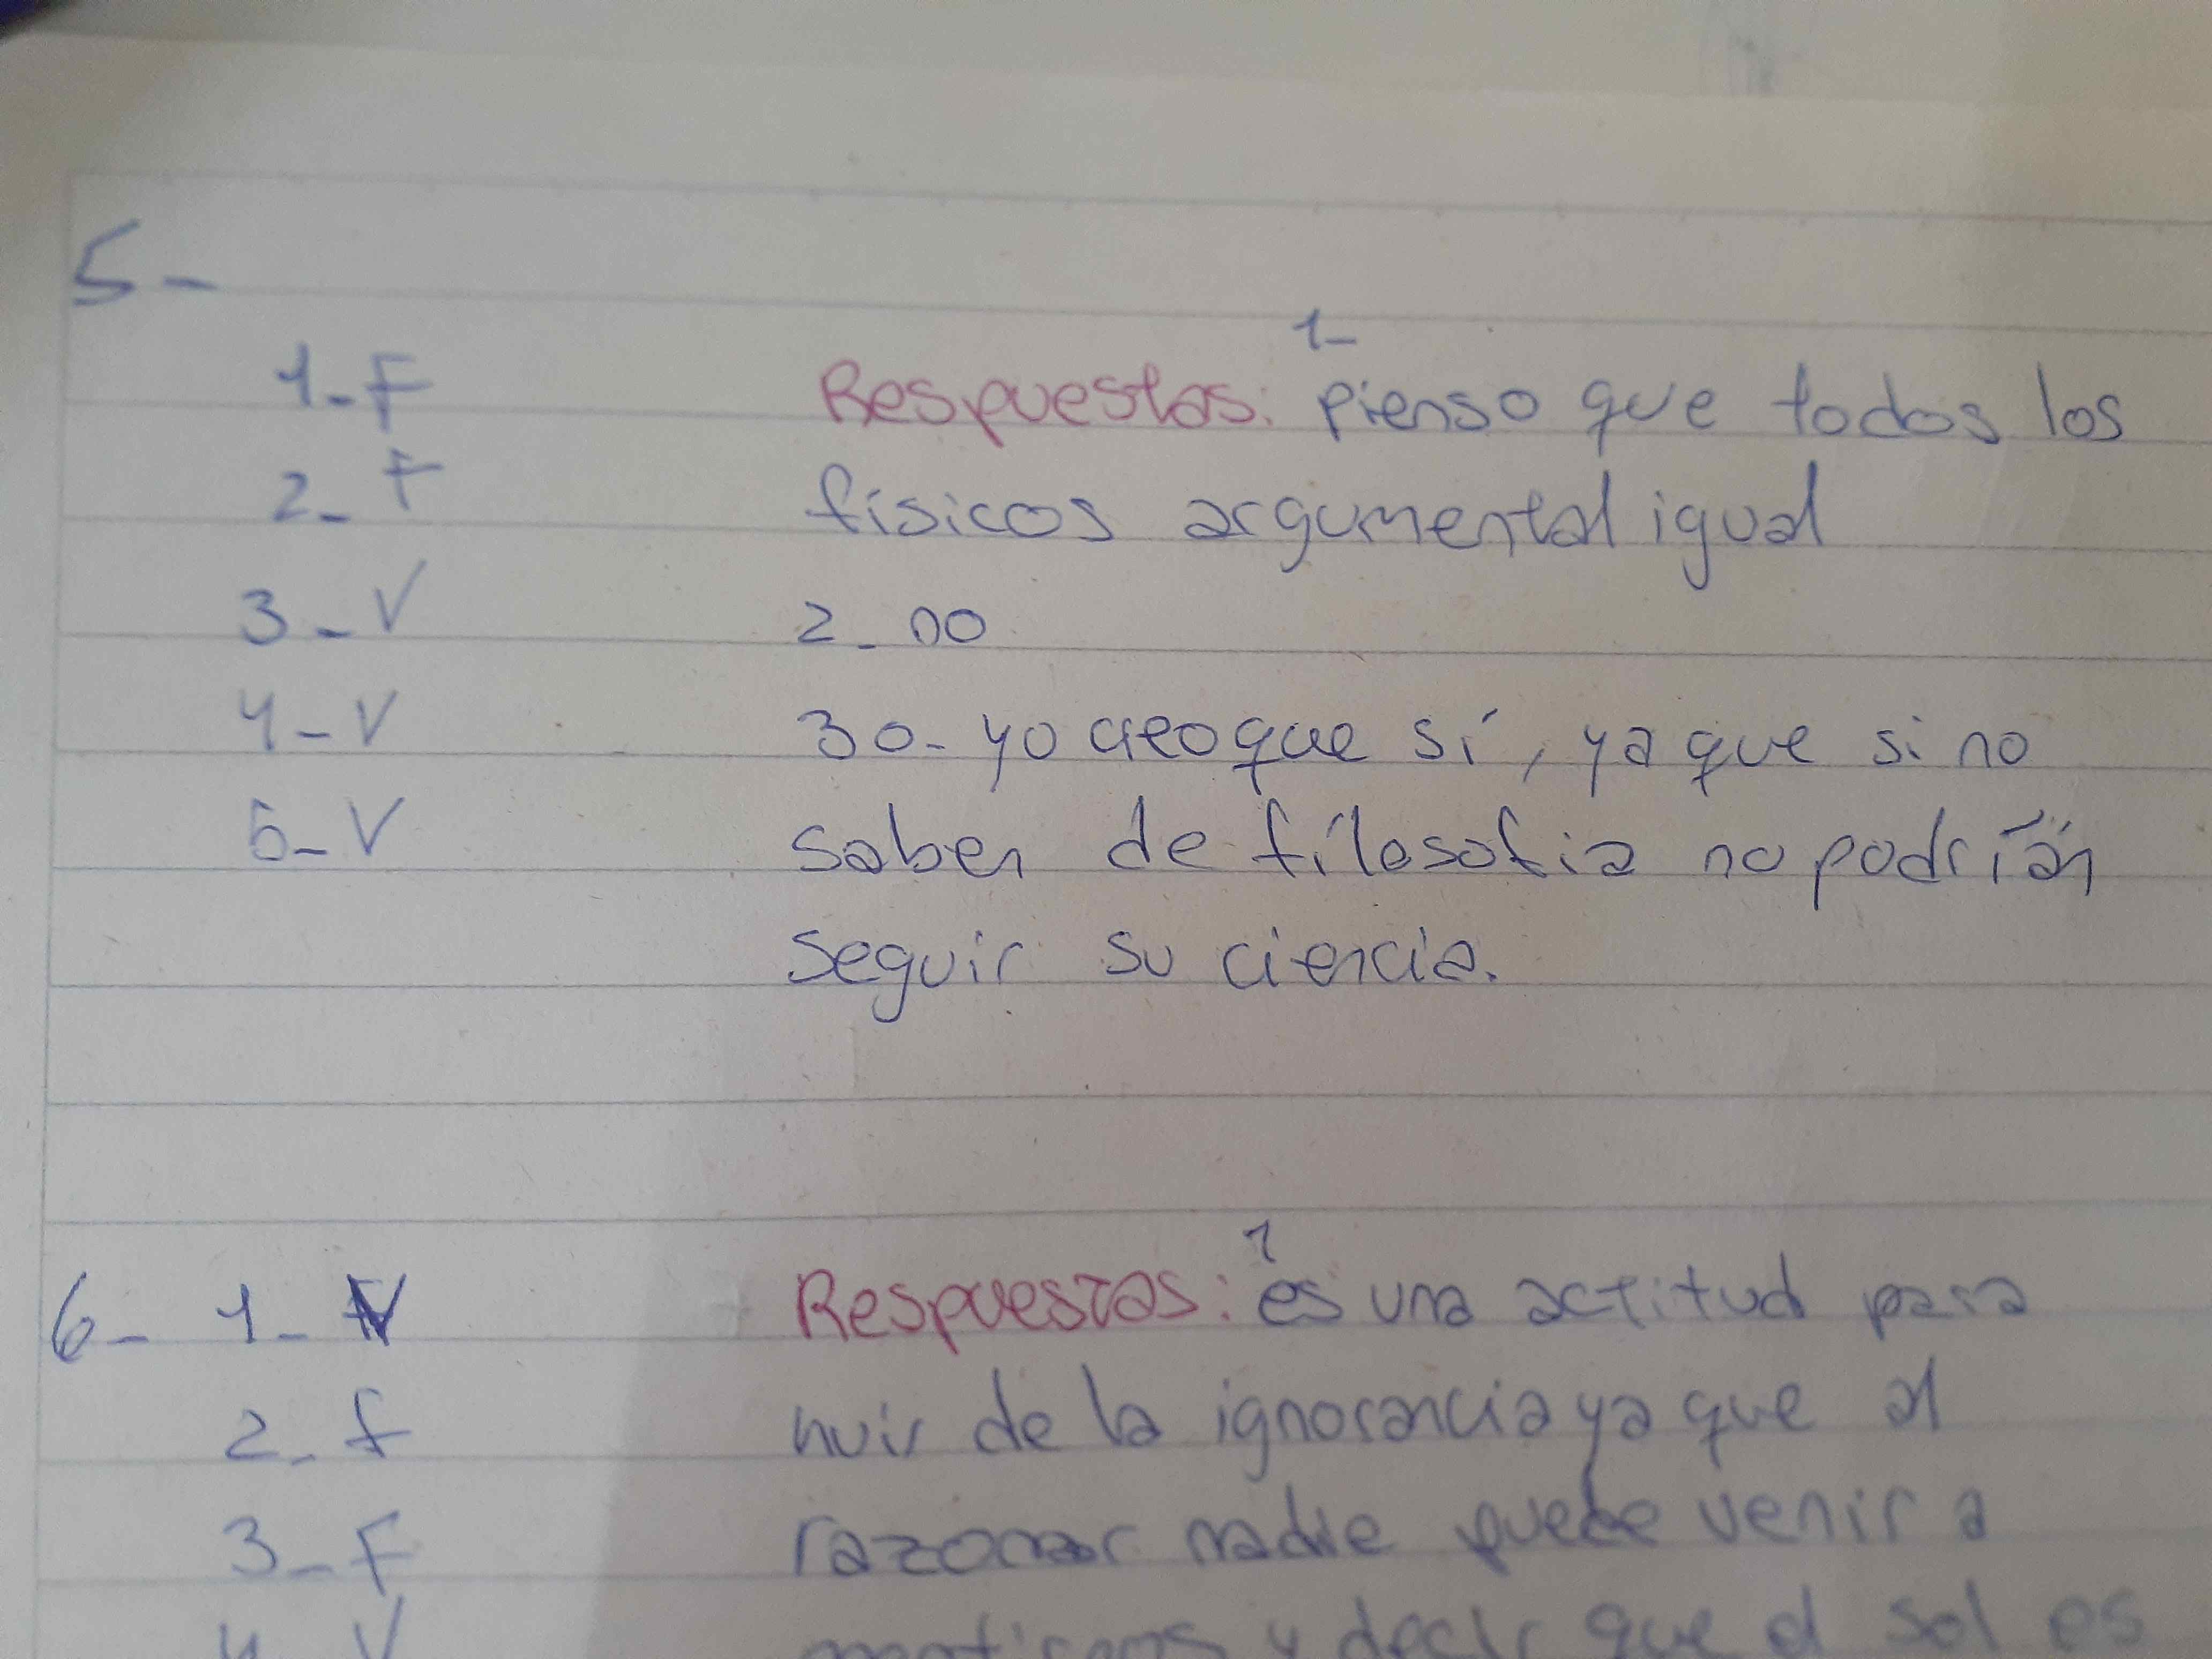 5-
1-F
2-F
3-V
4-V
5-V
1-
Respuestas: pienso que todos los
físicos argumental igual
2-no
30-yo creo que sí, ya que si no
saben de filosofia no podrían
seguir su ciencia.
6- 1- V
2- f
3-F
4 V
1
Respuestas: es una actitud para
huir de la ignorancia ya que al
razonar nadie puede venir a
y decir que el sol es